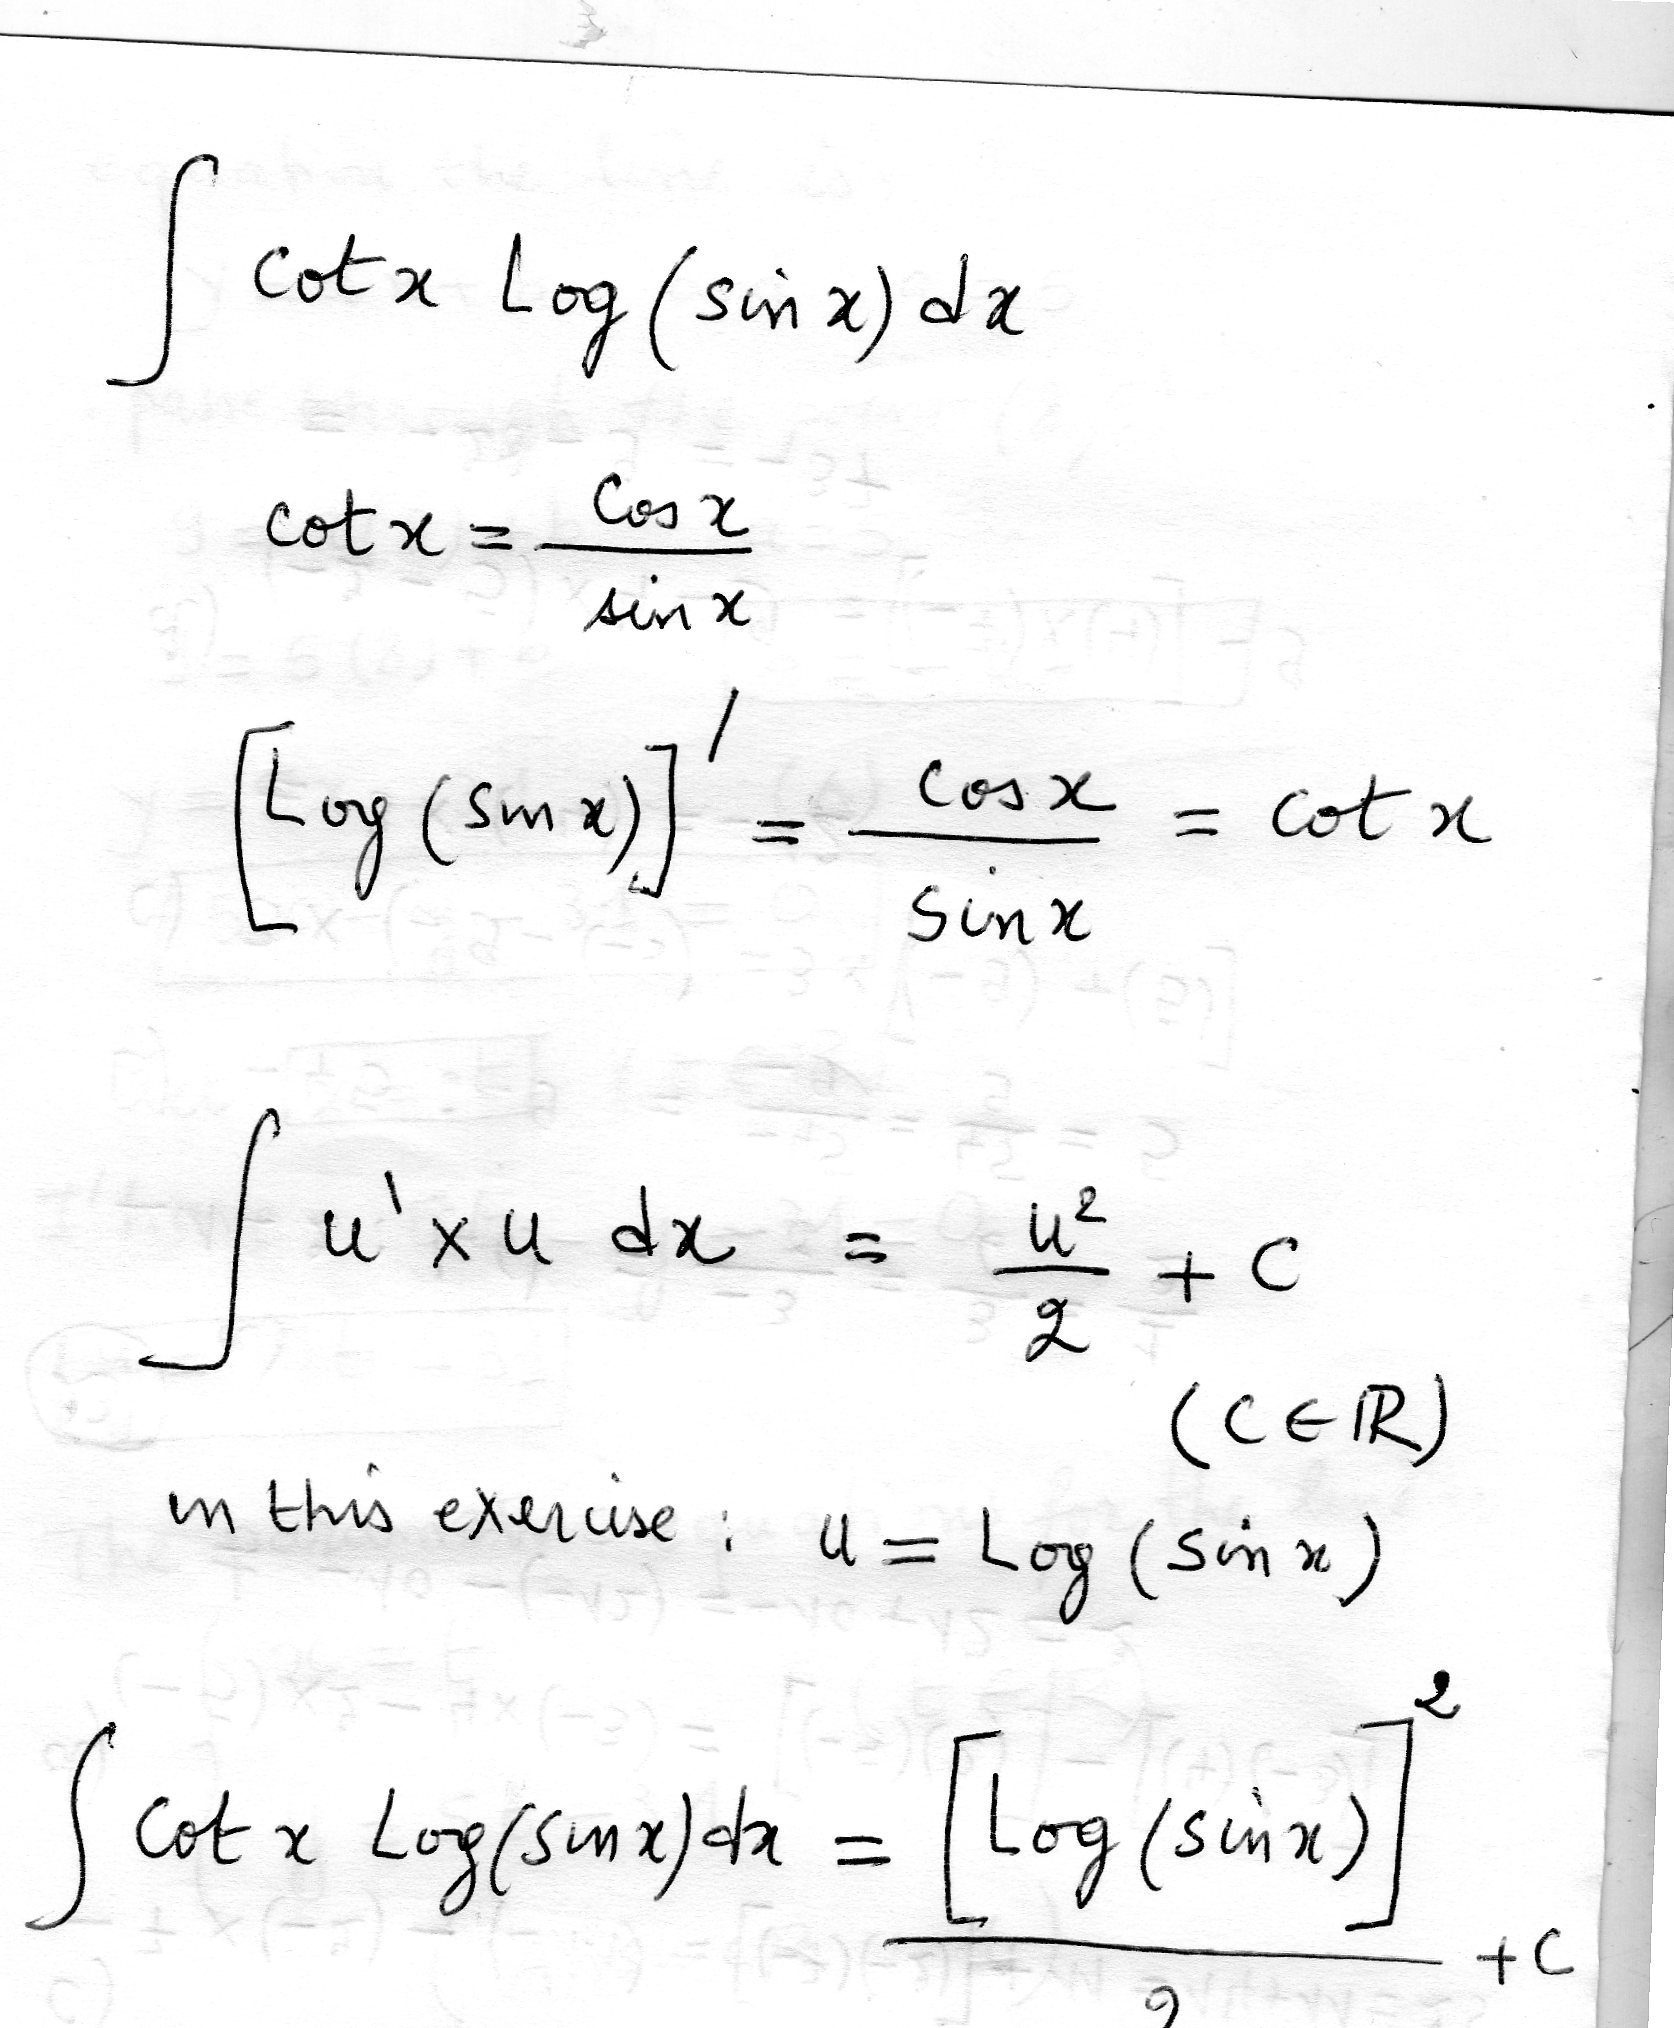 ∫ cot x Log (sin x) dx
cot x = Cos x / sin x
[Log (sin x)]' = cos x / sin x = cot x
∫ u' × u dx = u² / 2 + C
(C ∈ ℝ)
in this exercise : u = Log (sin x)
∫ cot x Log (sin x) dx = [Log (sin x)]² / 2 + C